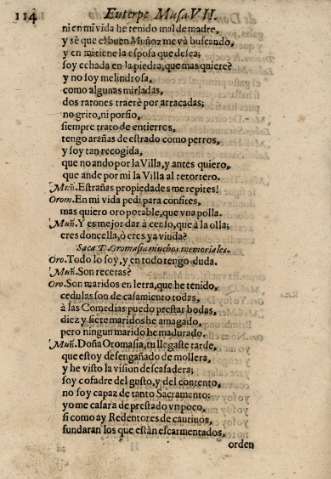 114 Euterpe Musa VII.
ni en mi vida he tenido mal de madre,
y sè que el buen Muñoz me và buscando,
y en mi tiene la esposa que desea;
soy echada en la piedra, que mas quiere?
y no soy melindrosa,
como algunas mirladas,
dos ratones traerè por arracadas;
no grito, ni porfio,
siempre trato de entierros,
tengo arañas de estrado como perros,
y soy tan recogida,
que no ando por la Villa, y antes quiero,
que ande por mi la Villa al retortero.
Muñ. Estrañas propiedades me repites!
Orom. En mi vida pedi para confites,
mas quiero oro potable, que vna polla.
Muñ. Y es mejor dar à censo, que à la olla;
eres doncella, ò eres ya viuda?
Saca D. Oromasia muchos memoriales.
Oro. Todo lo soy, y en todo tengo duda.
Muñ. Son recetas?
Oro. Son maridos en letra, que he tenido,
cedulas son de casamiento todas,
à las Comedias puedo prestar bodas,
diez y siete maridos he amagado,
pero ningun marido he madurado.
Muñ. Doña Oromasia, tu llegaste tarde,
que estoy desengañado de mollera,
y he visto la vision descasadera;
soy cofadre del gusto, y del contento,
no soy capaz de tanto Sacramento;
yo me casara de prestado vn poco,
si como ay Redentores de cautiuos,
fundaran los que estàn escarmentados,
orden